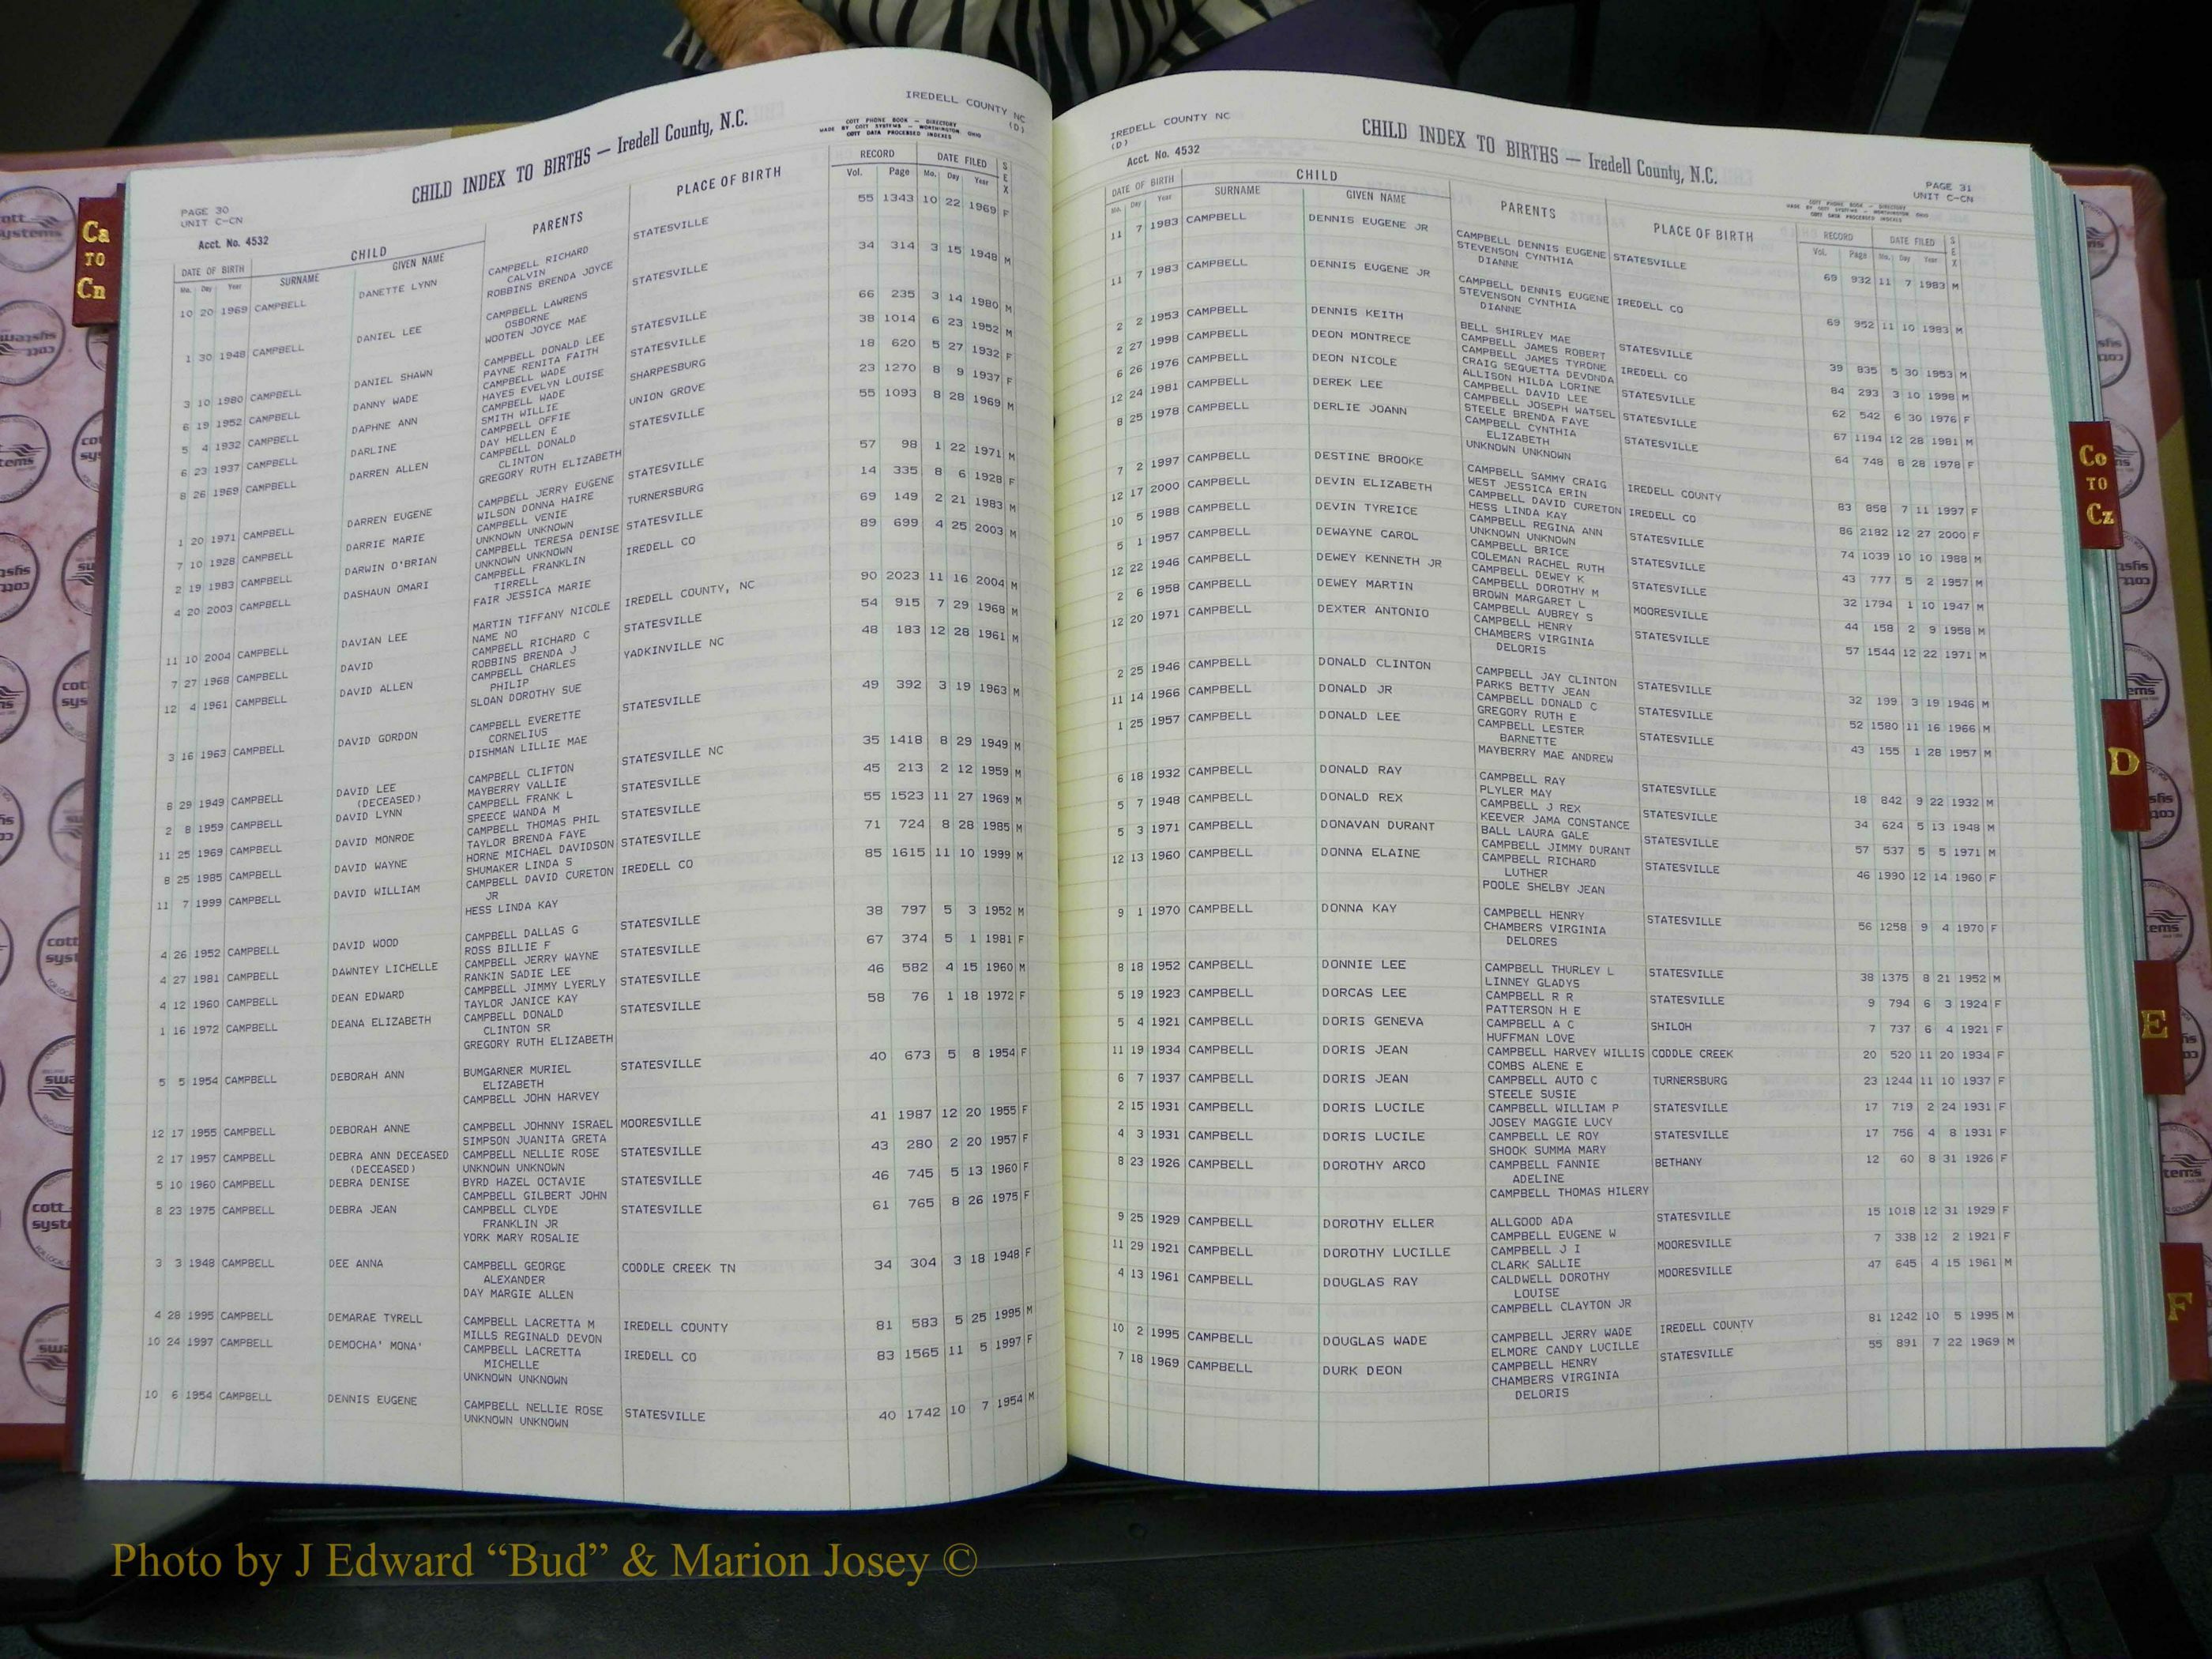 IREDELL COUNTY NC
(D)
CHILD INDEX TO BIRTHS — Iredell County, N.C.
COTT PHONE BOOK — DIRECTORY
MADE BY COTT SYSTEMS — WORTHINGTON, OHIO
COTT DATA PROCESSED INDEXES
PAGE 30
UNIT C-CN
Acct. No. 4532
DATE OF BIRTH CHILD PARENTS PLACE OF BIRTH RECORD DATE FILED SEX
Mo. Day Year SURNAME GIVEN NAME Vol. Page Mo. Day Year
10 20 1969 CAMPBELL DANETTE LYNN CAMPBELL RICHARD STATESVILLE 55 1343 10 22 1969 F
CALVIN
ROBBINS BRENDA JOYCE
1 30 1948 CAMPBELL DANIEL LEE CAMPBELL LAWRENS STATESVILLE 34 314 3 15 1948 M
OSBORNE
WOOTEN JOYCE MAE
3 10 1980 CAMPBELL DANIEL SHAWN CAMPBELL DONALD LEE STATESVILLE 66 235 3 14 1980 M
PAYNE RENITA FAITH
6 19 1952 CAMPBELL DANNY WADE CAMPBELL WADE STATESVILLE 38 1014 6 23 1952 M
HAYES EVELYN LOUISE
5 4 1932 CAMPBELL DAPHNE ANN CAMPBELL WADE SHARPESBURG 18 620 5 27 1932 F
SMITH WILLIE
6 23 1937 CAMPBELL DARLINE CAMPBELL OFFIE UNION GROVE 23 1270 8 9 1937 F
DAY HELLEN E
8 26 1969 CAMPBELL DARREN ALLEN CAMPBELL DONALD STATESVILLE 55 1093 8 28 1969 M
CLINTON
GREGORY RUTH ELIZABETH
1 20 1971 CAMPBELL DARREN EUGENE CAMPBELL JERRY EUGENE STATESVILLE 57 98 1 22 1971 M
WILSON DONNA HAIRE
7 10 1928 CAMPBELL DARRIE MARIE CAMPBELL VENIE TURNERSBURG 14 335 8 6 1928 F
UNKNOWN UNKNOWN
2 19 1983 CAMPBELL DARWIN O'BRIAN CAMPBELL TERESA DENISE STATESVILLE 69 149 2 21 1983 M
UNKNOWN UNKNOWN
4 20 2003 CAMPBELL DASHAUN OMARI CAMPBELL FRANKLIN IREDELL CO 89 699 4 25 2003 M
TIRRELL
FAIR JESSICA MARIE
11 10 2004 CAMPBELL DAVIAN LEE MARTIN TIFFANY NICOLE IREDELL COUNTY, NC 90 2023 11 16 2004 M
NAME NO
7 27 1968 CAMPBELL DAVID CAMPBELL RICHARD C STATESVILLE 54 915 7 29 1968 M
ROBBINS BRENDA J
12 4 1961 CAMPBELL DAVID ALLEN CAMPBELL CHARLES YADKINVILLE NC 48 183 12 28 1961 M
PHILIP
SLOAN DOROTHY SUE
3 16 1963 CAMPBELL DAVID GORDON CAMPBELL EVERETTE STATESVILLE 49 392 3 19 1963 M
CORNELIUS
DISHMAN LILLIE MAE
8 29 1949 CAMPBELL DAVID LEE CAMPBELL CLIFTON STATESVILLE NC 35 1418 8 29 1949 M
(DECEASED) MAYBERRY VALLIE
2 8 1959 CAMPBELL DAVID LYNN CAMPBELL FRANK L STATESVILLE 45 213 2 12 1959 M
SPEECE WANDA M
11 25 1969 CAMPBELL DAVID MONROE CAMPBELL THOMAS PHIL STATESVILLE 55 1523 11 27 1969 M
TAYLOR BRENDA FAYE
8 25 1985 CAMPBELL DAVID WAYNE HORNE MICHAEL DAVIDSON STATESVILLE 71 724 8 28 1985 M
SHUMAKER LINDA S
11 7 1999 CAMPBELL DAVID WILLIAM CAMPBELL DAVID CURETON IREDELL CO 85 1615 11 10 1999 M
JR
HESS LINDA KAY
4 26 1952 CAMPBELL DAVID WOOD CAMPBELL DALLAS G STATESVILLE 38 797 5 3 1952 M
ROSS BILLIE F
4 27 1981 CAMPBELL DAWNTEY LICHELLE CAMPBELL JERRY WAYNE STATESVILLE 67 374 5 1 1981 F
RANKIN SADIE LEE
4 12 1960 CAMPBELL DEAN EDWARD CAMPBELL JIMMY LYERLY STATESVILLE 46 582 4 15 1960 M
TAYLOR JANICE KAY
1 16 1972 CAMPBELL DEANA ELIZABETH CAMPBELL DONALD STATESVILLE 58 76 1 18 1972 F
CLINTON SR
GREGORY RUTH ELIZABETH
5 5 1954 CAMPBELL DEBORAH ANN BUMGARNER MURIEL STATESVILLE 40 673 5 8 1954 F
ELIZABETH
CAMPBELL JOHN HARVEY
12 17 1955 CAMPBELL DEBORAH ANNE CAMPBELL JOHNNY ISRAEL MOORESVILLE 41 1987 12 20 1955 F
SIMPSON JUANITA GRETA
2 17 1957 CAMPBELL DEBRA ANN DECEASED CAMPBELL NELLIE ROSE STATESVILLE 43 280 2 20 1957 F
(DECEASED) UNKNOWN UNKNOWN
5 10 1960 CAMPBELL DEBRA DENISE BYRD HAZEL OCTAVIE STATESVILLE 46 745 5 13 1960 F
CAMPBELL GILBERT JOHN
8 23 1975 CAMPBELL DEBRA JEAN CAMPBELL CLYDE STATESVILLE 61 765 8 26 1975 F
FRANKLIN JR
YORK MARY ROSALIE
3 3 1948 CAMPBELL DEE ANNA CAMPBELL GEORGE CODDLE CREEK TN 34 304 3 18 1948 F
ALEXANDER
DAY MARGIE ALLEN
4 28 1995 CAMPBELL DEMARAE TYRELL CAMPBELL LACRETTA M IREDELL COUNTY 81 583 5 25 1995 M
MILLS REGINALD DEVON
10 24 1997 CAMPBELL DEMOCHA' MONA' CAMPBELL LACRETTA IREDELL CO 83 1565 11 5 1997 F
MICHELLE
UNKNOWN UNKNOWN
10 6 1954 CAMPBELL DENNIS EUGENE CAMPBELL NELLIE ROSE STATESVILLE 40 1742 10 7 1954 M
UNKNOWN UNKNOWN
IREDELL COUNTY NC
(D)
Acct. No. 4532
CHILD INDEX TO BIRTHS — Iredell County, N.C.
PAGE 31
UNIT C-CN
COTT PHONE BOOK — DIRECTORY
MADE BY COTT SYSTEMS — WORTHINGTON, OHIO
COTT DATA PROCESSED INDEXES
DATE OF BIRTH CHILD PARENTS PLACE OF BIRTH RECORD DATE FILED SEX
Mo. Day Year SURNAME GIVEN NAME Vol. Page Mo. Day Year
11 7 1983 CAMPBELL DENNIS EUGENE JR CAMPBELL DENNIS EUGENE STATESVILLE 69 932 11 7 1983 M
STEVENSON CYNTHIA
DIANNE
11 7 1983 CAMPBELL DENNIS EUGENE JR CAMPBELL DENNIS EUGENE IREDELL CO 69 952 11 10 1983 M
STEVENSON CYNTHIA
DIANNE
2 2 1953 CAMPBELL DENNIS KEITH BELL SHIRLEY MAE STATESVILLE 39 835 5 30 1953 M
CAMPBELL JAMES ROBERT
2 27 1998 CAMPBELL DEON MONTRECE CAMPBELL JAMES TYRONE IREDELL CO 84 293 3 10 1998 M
CRAIG SEQUETTA DEVONDA
6 26 1976 CAMPBELL DEON NICOLE ALLISON HILDA LORINE STATESVILLE 62 542 6 30 1976 F
CAMPBELL DAVID LEE
12 24 1981 CAMPBELL DEREK LEE CAMPBELL JOSEPH WATSEL STATESVILLE 67 1194 12 28 1981 M
STEELE BRENDA FAYE
8 25 1978 CAMPBELL DERLIE JOANN CAMPBELL CYNTHIA STATESVILLE 64 748 8 28 1978 F
ELIZABETH
UNKNOWN UNKNOWN
7 2 1997 CAMPBELL DESTINE BROOKE CAMPBELL SAMMY CRAIG IREDELL COUNTY 83 858 7 11 1997 F
WEST JESSICA ERIN
12 17 2000 CAMPBELL DEVIN ELIZABETH CAMPBELL DAVID CURETON IREDELL CO 86 2182 12 27 2000 F
HESS LINDA KAY
10 5 1988 CAMPBELL DEVIN TYREICE CAMPBELL REGINA ANN STATESVILLE 74 1039 10 10 1988 M
UNKNOWN UNKNOWN
5 1 1957 CAMPBELL DEWAYNE CAROL CAMPBELL BRICE STATESVILLE 43 777 5 2 1957 M
COLEMAN RACHEL RUTH
12 22 1946 CAMPBELL DEWEY KENNETH JR CAMPBELL DEWEY K STATESVILLE 32 1794 1 10 1947 M
CAMPBELL DOROTHY M
2 6 1958 CAMPBELL DEWEY MARTIN BROWN MARGARET L MOORESVILLE 44 158 2 9 1958 M
CAMPBELL AUBREY S
12 20 1971 CAMPBELL DEXTER ANTONIO CAMPBELL HENRY STATESVILLE 57 1544 12 22 1971 M
CHAMBERS VIRGINIA
DELORIS
2 25 1946 CAMPBELL DONALD CLINTON CAMPBELL JAY CLINTON STATESVILLE 32 199 3 19 1946 M
PARKS BETTY JEAN
11 14 1966 CAMPBELL DONALD JR CAMPBELL DONALD C STATESVILLE 52 1580 11 16 1966 M
GREGORY RUTH E
1 25 1957 CAMPBELL DONALD LEE CAMPBELL LESTER STATESVILLE 43 155 1 28 1957 M
BARNETTE
MAYBERRY MAE ANDREW
6 18 1932 CAMPBELL DONALD RAY CAMPBELL RAY STATESVILLE 18 842 9 22 1932 M
PLYLER MAY
5 7 1948 CAMPBELL DONALD REX CAMPBELL J REX STATESVILLE 34 624 5 13 1948 M
KEEVER JAMA CONSTANCE
5 3 1971 CAMPBELL DONAVAN DURANT BALL LAURA GALE STATESVILLE 57 537 5 5 1971 M
CAMPBELL JIMMY DURANT
12 13 1960 CAMPBELL DONNA ELAINE CAMPBELL RICHARD STATESVILLE 46 1990 12 14 1960 F
LUTHER
POOLE SHELBY JEAN
9 1 1970 CAMPBELL DONNA KAY CAMPBELL HENRY STATESVILLE 56 1258 9 4 1970 F
CHAMBERS VIRGINIA
DELORES
8 18 1952 CAMPBELL DONNIE LEE CAMPBELL THURLEY L STATESVILLE 38 1375 8 21 1952 M
LINNEY GLADYS
5 19 1923 CAMPBELL DORCAS LEE CAMPBELL R R STATESVILLE 9 794 6 3 1924 F
PATTERSON H E
5 4 1921 CAMPBELL DORIS GENEVA CAMPBELL A C SHILOH 7 737 6 4 1921 F
HUFFMAN LOVE
11 19 1934 CAMPBELL DORIS JEAN CAMPBELL HARVEY WILLIS CODDLE CREEK 20 520 11 20 1934 F
COMBS ALENE E
6 7 1937 CAMPBELL DORIS JEAN CAMPBELL AUTO C TURNERSBURG 23 1244 11 10 1937 F
STEELE SUSIE
2 15 1931 CAMPBELL DORIS LUCILE CAMPBELL WILLIAM P STATESVILLE 17 719 2 24 1931 F
JOSEY MAGGIE LUCY
4 3 1931 CAMPBELL DORIS LUCILE CAMPBELL LE ROY STATESVILLE 17 756 4 8 1931 F
SHOOK SUMMA MARY
8 23 1926 CAMPBELL DOROTHY ARCO CAMPBELL FANNIE BETHANY 12 60 8 31 1926 F
ADELINE
CAMPBELL THOMAS HILERY
9 25 1929 CAMPBELL DOROTHY ELLER ALLGOOD ADA STATESVILLE 15 1018 12 31 1929 F
CAMPBELL EUGENE W
11 29 1921 CAMPBELL DOROTHY LUCILLE CAMPBELL J I MOORESVILLE 7 338 12 2 1921 F
CLARK SALLIE
4 13 1961 CAMPBELL DOUGLAS RAY CALDWELL DOROTHY MOORESVILLE 47 645 4 15 1961 M
LOUISE
CAMPBELL CLAYTON JR
10 2 1995 CAMPBELL DOUGLAS WADE CAMPBELL JERRY WADE IREDELL COUNTY 81 1242 10 5 1995 M
ELMORE CANDY LUCILLE
7 18 1969 CAMPBELL DURK DEON CAMPBELL HENRY STATESVILLE 55 891 7 22 1969 M
CHAMBERS VIRGINIA
DELORIS
Ca
TO
Cn
Co
TO
Cz
D
E
F
cott
systems
Photo by J Edward “Bud” & Marion Josey ©